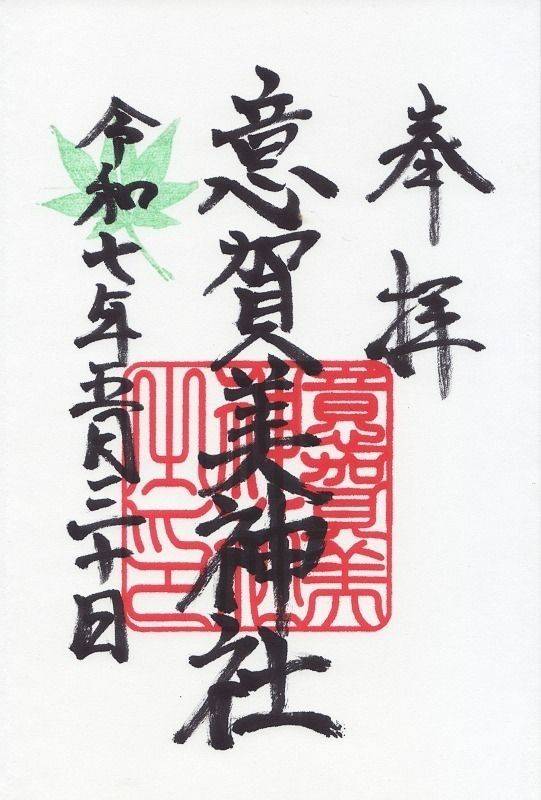 奉拝
意賀美神社
令和七年五月三十日
意賀美
神社
之印